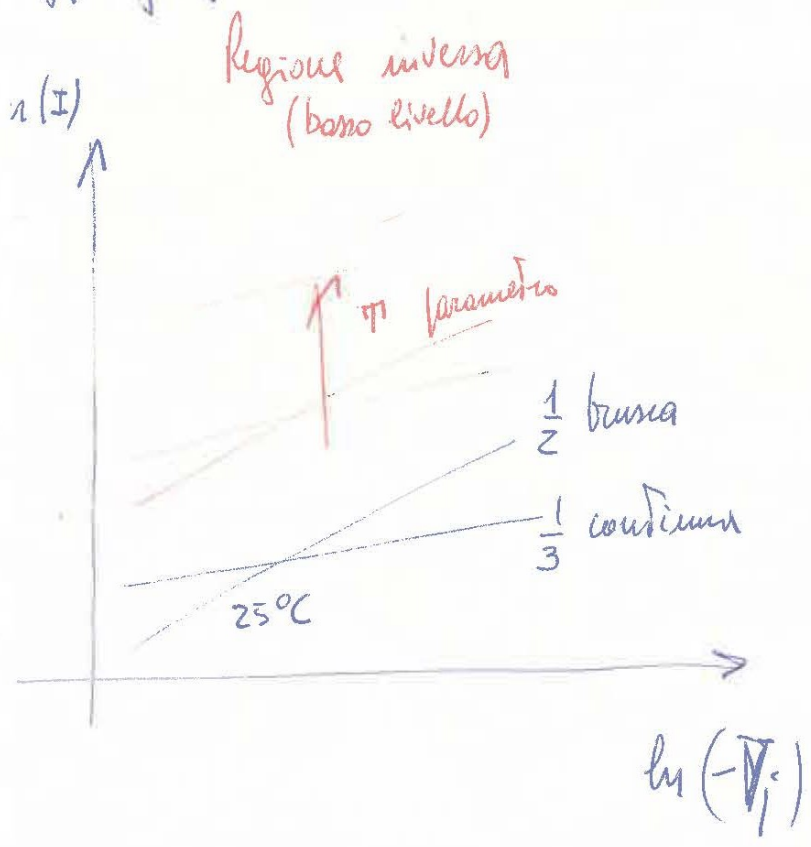 Regione inversa
(basso livello)
n(I)
T parametro
1/2 brusca
1/3 continua
25°C
ln(-Vj)